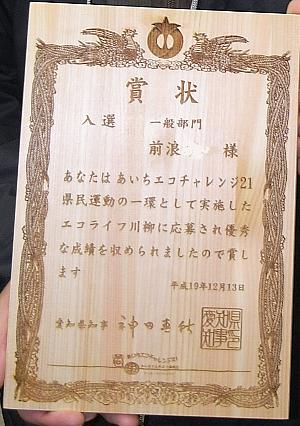 賞状
入選 一般部門
前浪 様
あなたはあいちエコチャレンジ21
県民運動の一環として実施した
エコライフ川柳に応募され優秀
な成績を収められましたので賞し
ます
平成19年12月13日
愛知県知事 神田真秋
愛知県
知事印